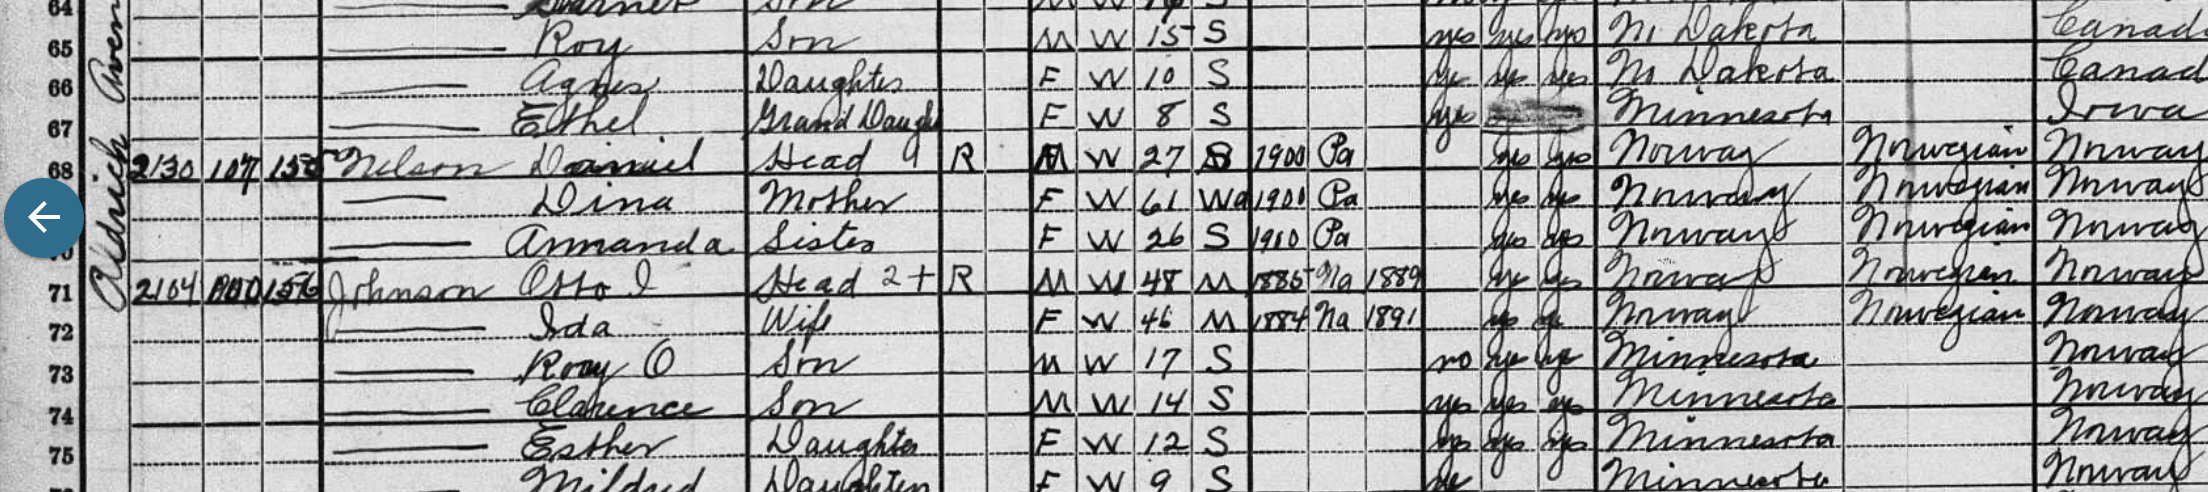 Aldrich Aven
64 Son 16 S
65 Roy Son M W 15 S yes yes yes N. Dakota Canad
66 Agnes Daughter F W 10 S ye yes yes N Dakota Canad
67 Ethel Grand Daugh F W 8 S ye Minnesota Iowa
68 2130 107 Nelson Daniel Head R M W 27 S 1900 Pa yes yes Norway Norwegian Norway
Dina Mother F W 61 Wd 1900 Pa yes yes Norway Norwegian Norway
Amanda Sister F W 26 S 1910 Pa yes yes Norway Norwegian Norway
71 2104 156 Johnson Otto I Head 2 + R M W 48 M 1885 Na 1889 ye yes Norway Norwegian Norway
72 Ida Wife F W 46 M 1884 Na 1891 yes ye Norway Norwegian Norway
73 Roay O Son M W 17 S no ye ye Minnesota Norway
74 Clarence Son M W 14 S yes yes yes Minnesota Norway
75 Esther Daughter F W 12 S yes yes yes Minnesota Norway
Mildred Daughter F W 9 S ye Minnesota Norway